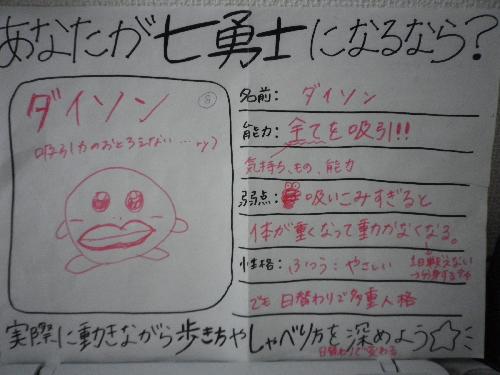 あなたが七勇士になるなら？
ダイソン
吸引力のおとろえない…
名前： ダイソン
能力： 全てを吸引!!
気持ち、もの、能力
弱点： 吸いこみすぎると
体が重くなって動かなくなる。
性格： ふつう：やさしい
でも 日替わりで多重人格
実際に動きながら歩き方やしゃべり方を深めよう☆
日替わりで変わる